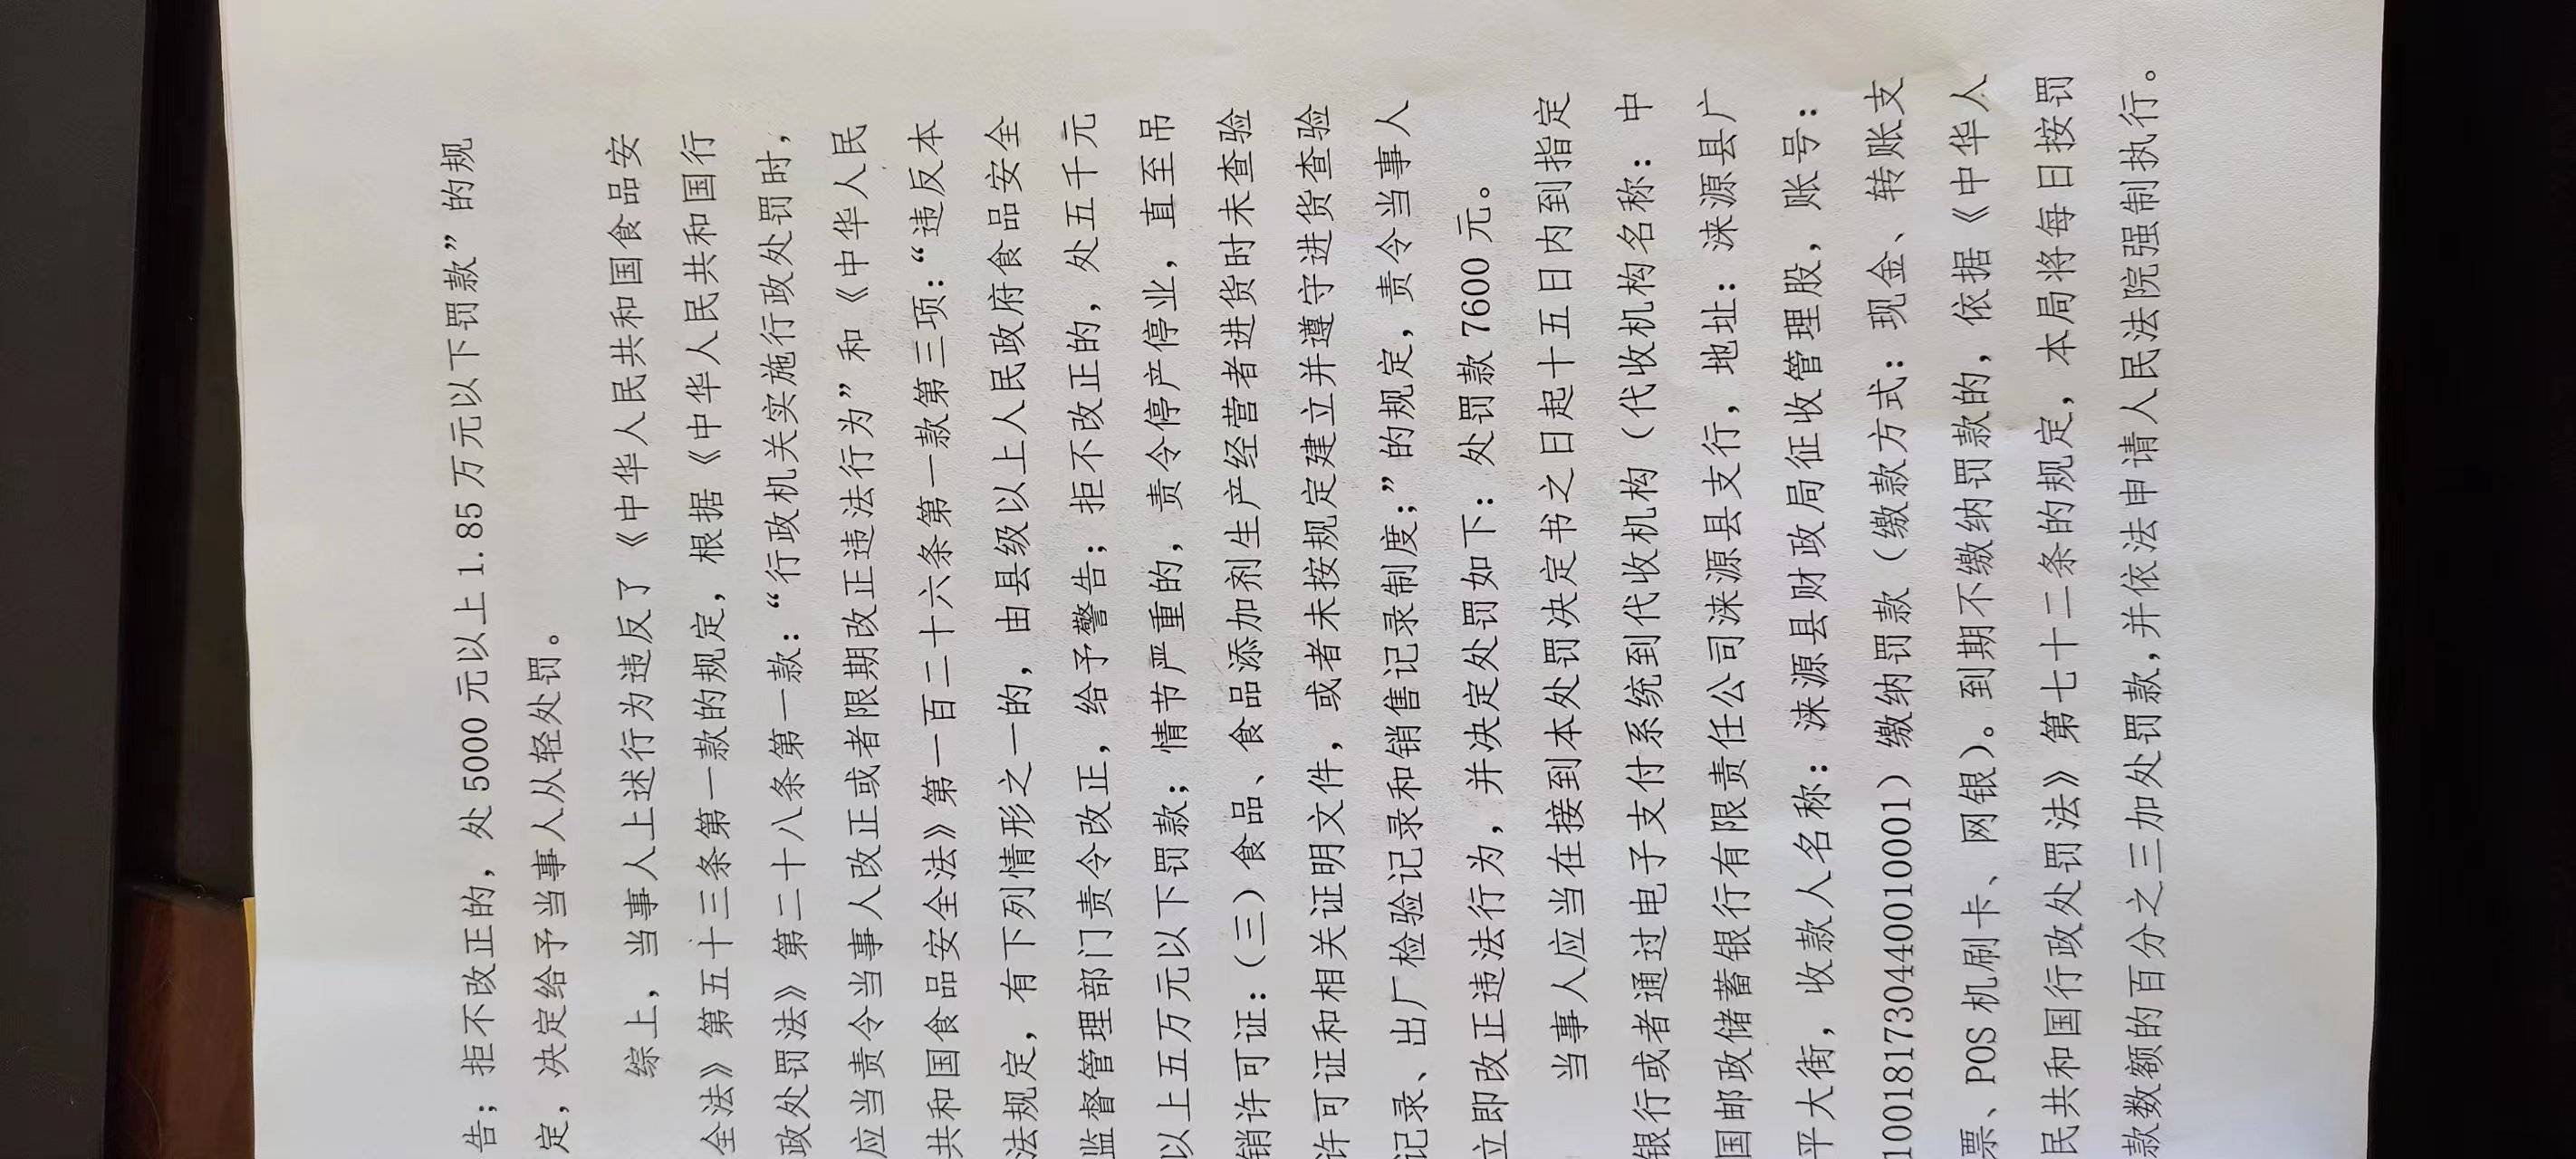 告；拒不改正的，处 5000 元以上 1.85 万元以下罚款”的规
定，决定给予当事人从轻处罚。
综上，当事人上述行为违反了《中华人民共和国食品安
全法》第五十三条第一款的规定，根据《中华人民共和国行
政处罚法》第二十八条第一款：“行政机关实施行政处罚时，
应当责令当事人改正或者限期改正违法行为”和《中华人民
共和国食品安全法》第一百二十六条第一款第三项：“违反本
法规定，有下列情形之一的，由县级以上人民政府食品安全
监督管理部门责令改正，给予警告；拒不改正的，处五千元
以上五万元以下罚款；情节严重的，责令停产停业，直至吊
销许可证：（三）食品、食品添加剂生产经营者进货时未查验
许可证和相关证明文件，或者未按规定建立并遵守进货查验
记录、出厂检验记录和销售记录制度；”的规定，责令当事人
立即改正违法行为，并决定处罚如下：处罚款 7600 元。
当事人应当在接到本处罚决定书之日起十五日内到指定
银行或者通过电子支付系统到代收机构（代收机构名称：中
国邮政储蓄银行有限责任公司涞源县支行，地址：涞源县广
平大街，收款人名称：涞源县财政局征收管理股，账号：
100181730440010001）缴纳罚款（缴款方式：现金、转账支
票、POS 机刷卡、网银）。到期不缴纳罚款的，依据《中华人
民共和国行政处罚法》第七十二条的规定，本局将每日按罚
款数额的百分之三加处罚款，并依法申请人民法院强制执行。